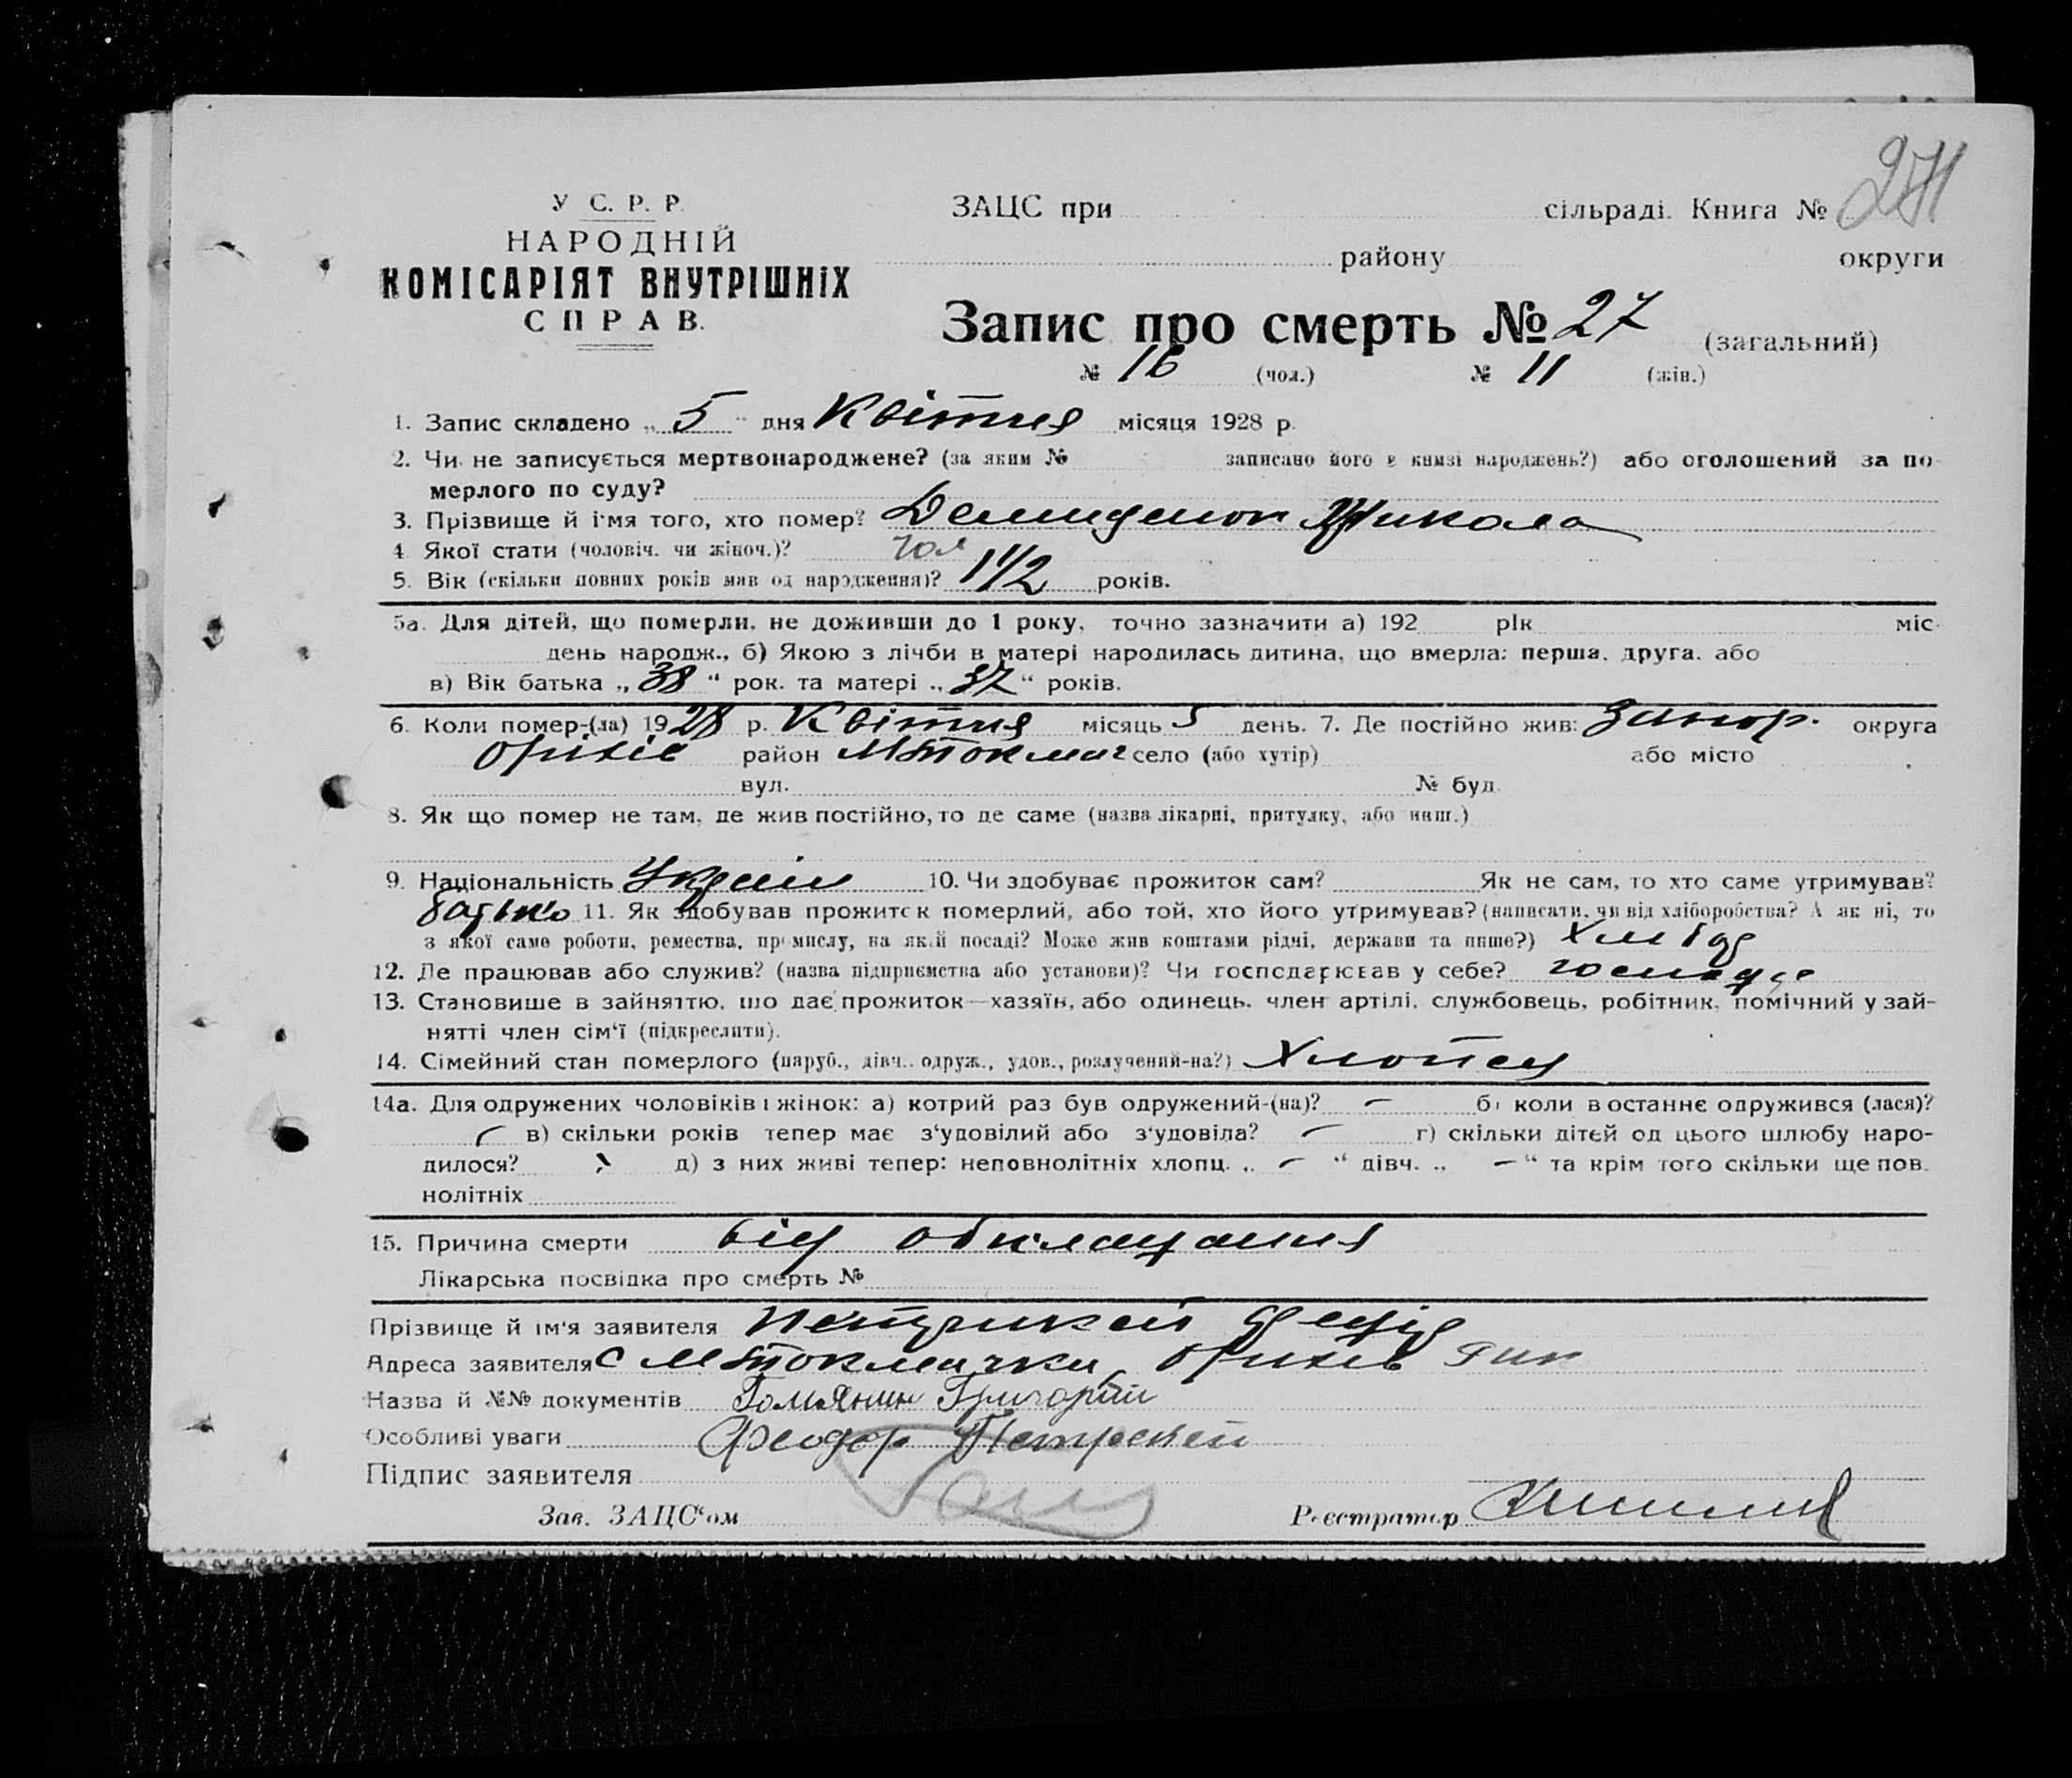 У С. Р. Р.
НАРОДНІЙ
КОМІСАРІЯТ ВНУТРІШНІХ
СПРАВ.
ЗАЦС при сільраді. Книга №
району округи
Запис про смерть № 27 (загальний)
№ 16 (чол.) № 11 (жін.)
1. Запис складено „ 5 " дня Квітня місяця 1928 р.
2. Чи не записується мертвонароджене? (за яким № записано його в книзі народжень?) або оголошений за по-
мерлого по суду?
3. Прізвище й ім'я того, хто помер? Микола
4. Якої стати (чоловіч. чи жіноч.)? чол
5. Вік (скільки повних років мав од народження)? 1 1/2 років.
5а. Для дітей, що померли, не доживши до 1 року, точно зазначити а) 192 рік міс.
день народж., б) Якою з лічби в матері народилась дитина, що вмерла: перша, друга, або
в) Вік батька „ 38 " рок. та матері „ 37 " років.
6. Коли помер-(ла) 1928 р. Квітня місяць 5 день. 7. Де постійно жив: Запор. округа
Оріхів район М Токмач село (або хутір) або місто
вул. № буд.
8. Як що помер не там, де жив постійно, то де саме (назва лікарні, притулку, або инш.)
9. Національність Україн 10. Чи здобуває прожиток сам? Як не сам, то хто саме утримував?
батько 11. Як здобував прожиток померлий, або той, хто його утримував? (написати, чи від хліборобства? А як ні, то
з якої саме роботи, ремества, промислу, на якій посаді? Може жив коштами рідні, держави та инше?)
12. Де працював або служив? (назва підприємства або установи)? Чи господарював у себе?
13. Становище в зайняттю, що дає прожиток—хазяїн, або одинець, член артілі, службовець, робітник, помічний у зай-
нятті член сім'ї (підкреслити).
14. Сімейний стан померлого (паруб., дівч., одруж., удов., розлучений-на?) Хлопец
14а. Для одружених чоловіків і жінок: а) котрий раз був одружений-(на)? — б) коли востаннє одружився (лася)?
— в) скільки років тепер має з'удовілий або з'удовіла? — г) скільки дітей од цього шлюбу наро-
дилося? д) з них живі тепер: неповнолітніх хлопц. „ — " дівч. „ — " та крім того скільки ще пов.
нолітніх
15. Причина смерти від обкладання
Лікарська посвідка про смерть №
Прізвище й ім'я заявителя
Адреса заявителя с М Токмачка, Оріхів
Назва й №№ документів Григорій
Особливі уваги Феодор
Підпис заявителя
Зав. ЗАЦС'ом Реєстратор